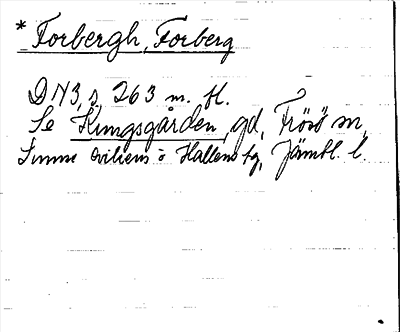 * Forbergh, Forberg
DN 3, s. 263 m. fl.
Se Kungsgården, gd, Frösö sn,
Sunne o Hallens tg, Jämtl. l.